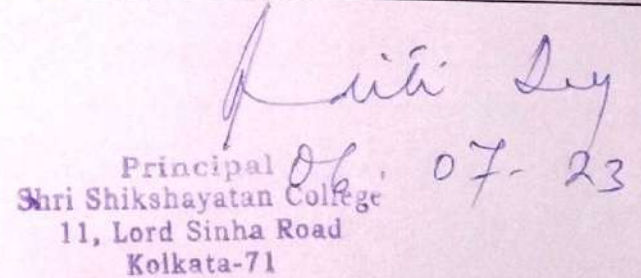 Dey
06. 07- 23
Principal
Shri Shikshayatan College
11, Lord Sinha Road
Kolkata-71